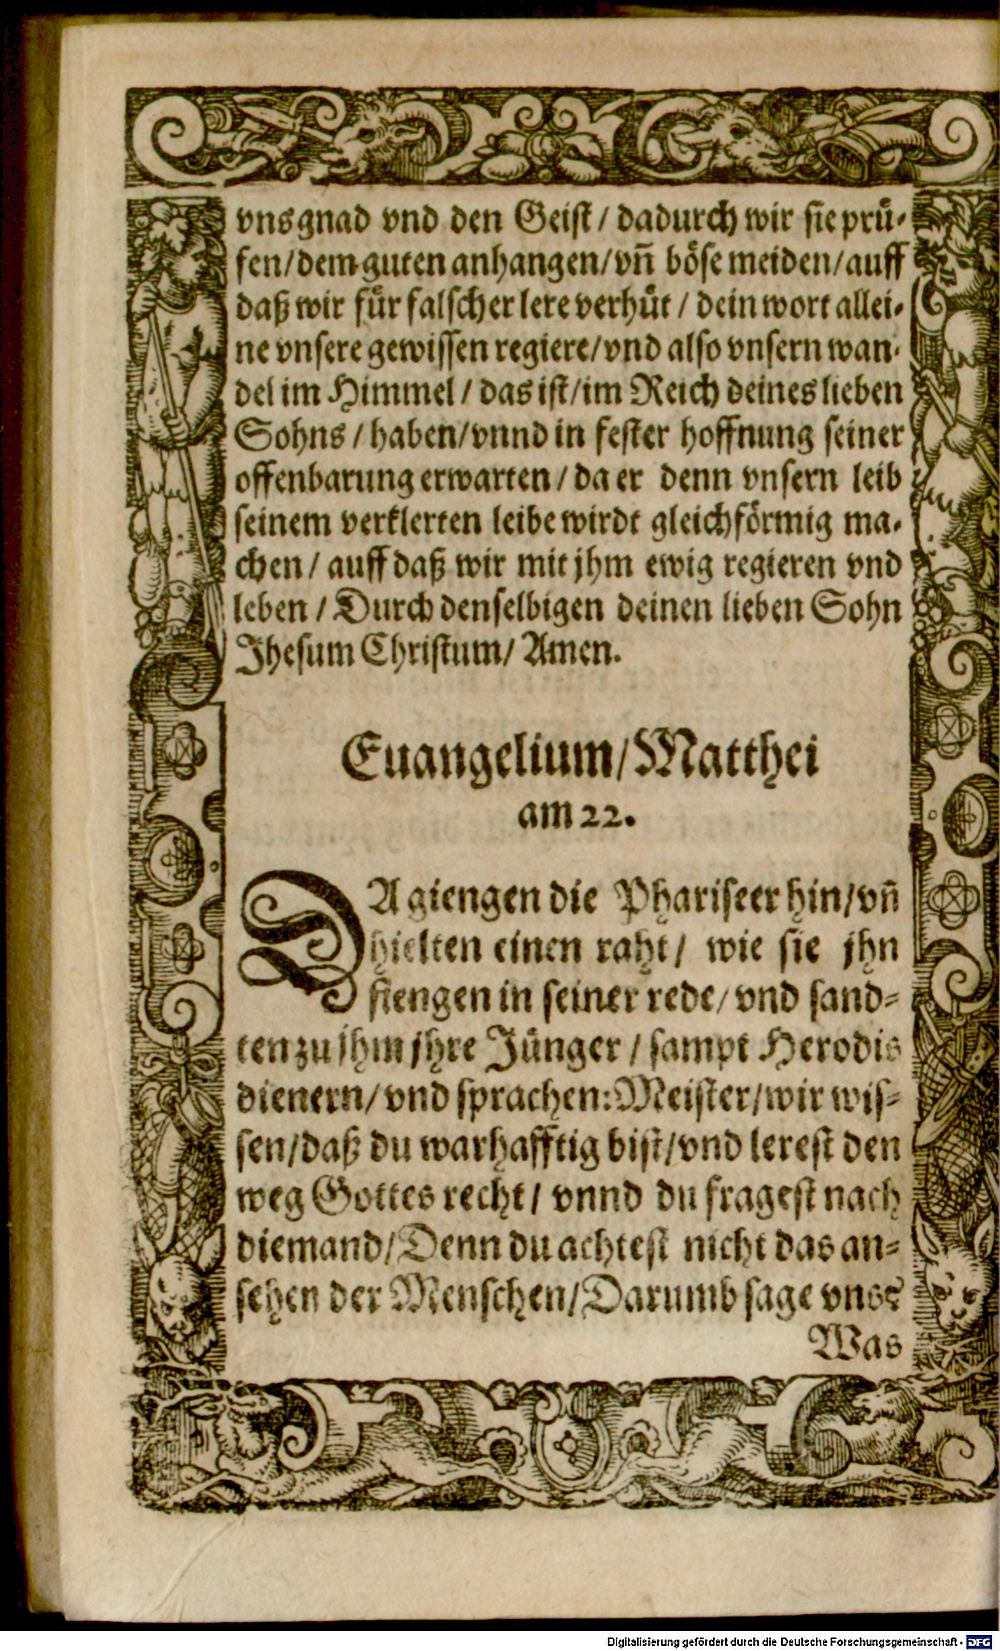 vns gnad vnd den Geist / dadurch wir sie prü-
fen/dem guten anhangen/vñ böse meiden/auff
daß wir für falscher lere verhüt / dein wort allei-
ne vnsere gewissen regiere/vnd also vnsern wan-
del im Himmel / das ist/im Reich deines lieben
Sohns / haben/vnnd in fester hoffnung seiner
offenbarung erwarten / da er denn vnsern leib
seinem verklerten leibe wirdt gleichförmig ma-
chen / auff daß wir mit jhm ewig regieren vnd
leben / Durch denselbigen deinen lieben Sohn
Jhesum Christum/ Amen.
Euangelium/Matthei
am 22.
DA giengen die Phariseer hin/vñ
hielten einen raht/ wie sie jhn
fiengen in seiner rede/ vnd sand-
ten zu jhm jhre Jünger / sampt Herodis
dienern/ vnd sprachen: Meister/wir wis-
sen/daß du warhafftig bist/vnd lerest den
weg Gottes recht/ vnnd du fragest nach
diemand/Denn du achtest nicht das an-
sehen der Menschen/Darumb sage vns:
Was
Digitalisierung gefördert durch die Deutsche Forschungsgemeinschaft - DFG